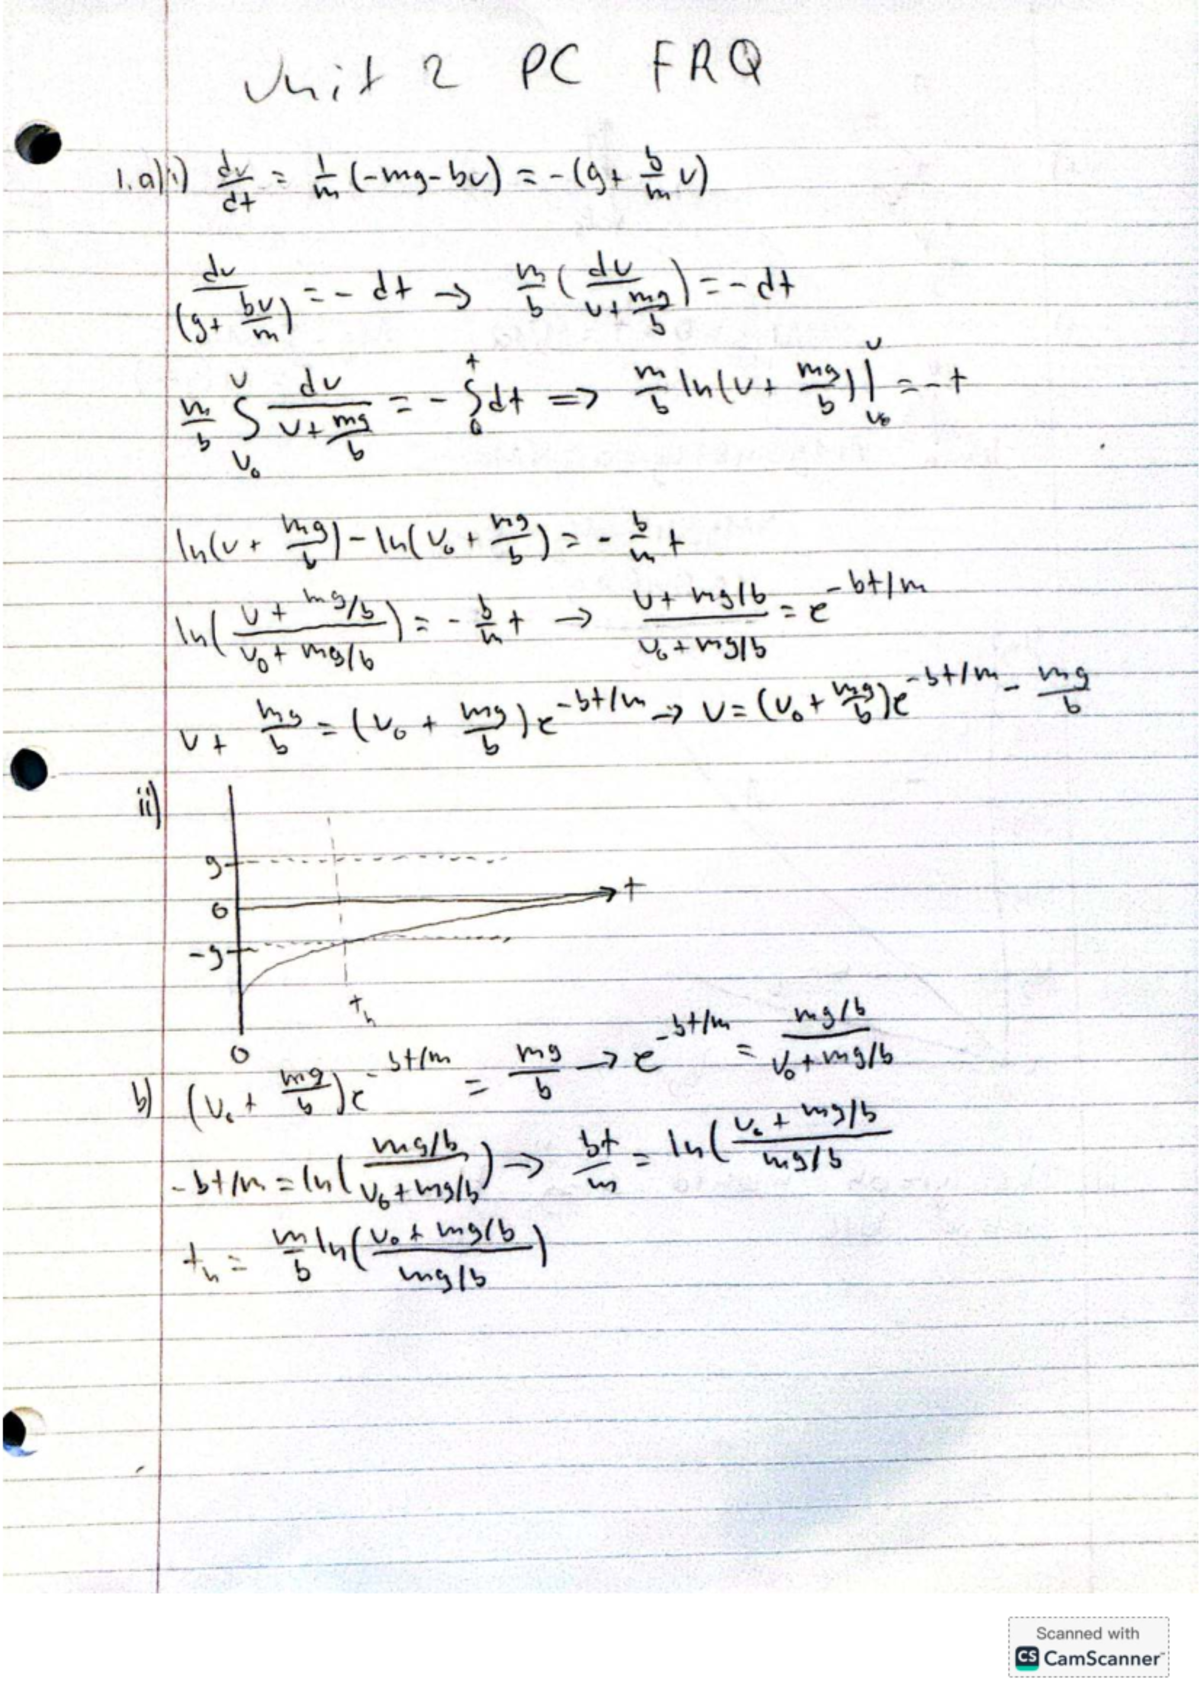 Unit 2 PC FRQ
1.a)i) dv/dt = 1/m (-mg-bv) = -(g+ b/m v)
dv/(g+ bv/m) = - dt → m/b (dv/(v+ mg/b)) = - dt
m/b ∫_{v₀}^{v} dv/(v+ mg/b) = - ∫_{0}^{t} dt ⇒ m/b ln(v+ mg/b)|_{v₀}^{v} = -t
ln(v+ mg/b) - ln(v₀ + mg/b) = - b/m t
ln((v+ mg/b)/(v₀+ mg/b)) = - b/m t → (v+ mg/b)/(v₀+mg/b) = e^{-bt/m}
v+ mg/b = (v₀ + mg/b) e^{-bt/m} → v = (v₀+ mg/b)e^{-bt/m} - mg/b
ii)
g
0
t
-g
t_h
0
b) (v₀+ mg/b)e^{-bt/m} = mg/b → e^{-bt/m} = (mg/b)/(v₀+mg/b)
-bt/m = ln((mg/b)/(v₀+mg/b)) → bt/m = ln((v₀+ mg/b)/(mg/b))
t_h = m/b ln((v₀+ mg/b)/(mg/b))
Scanned with
CS CamScanner